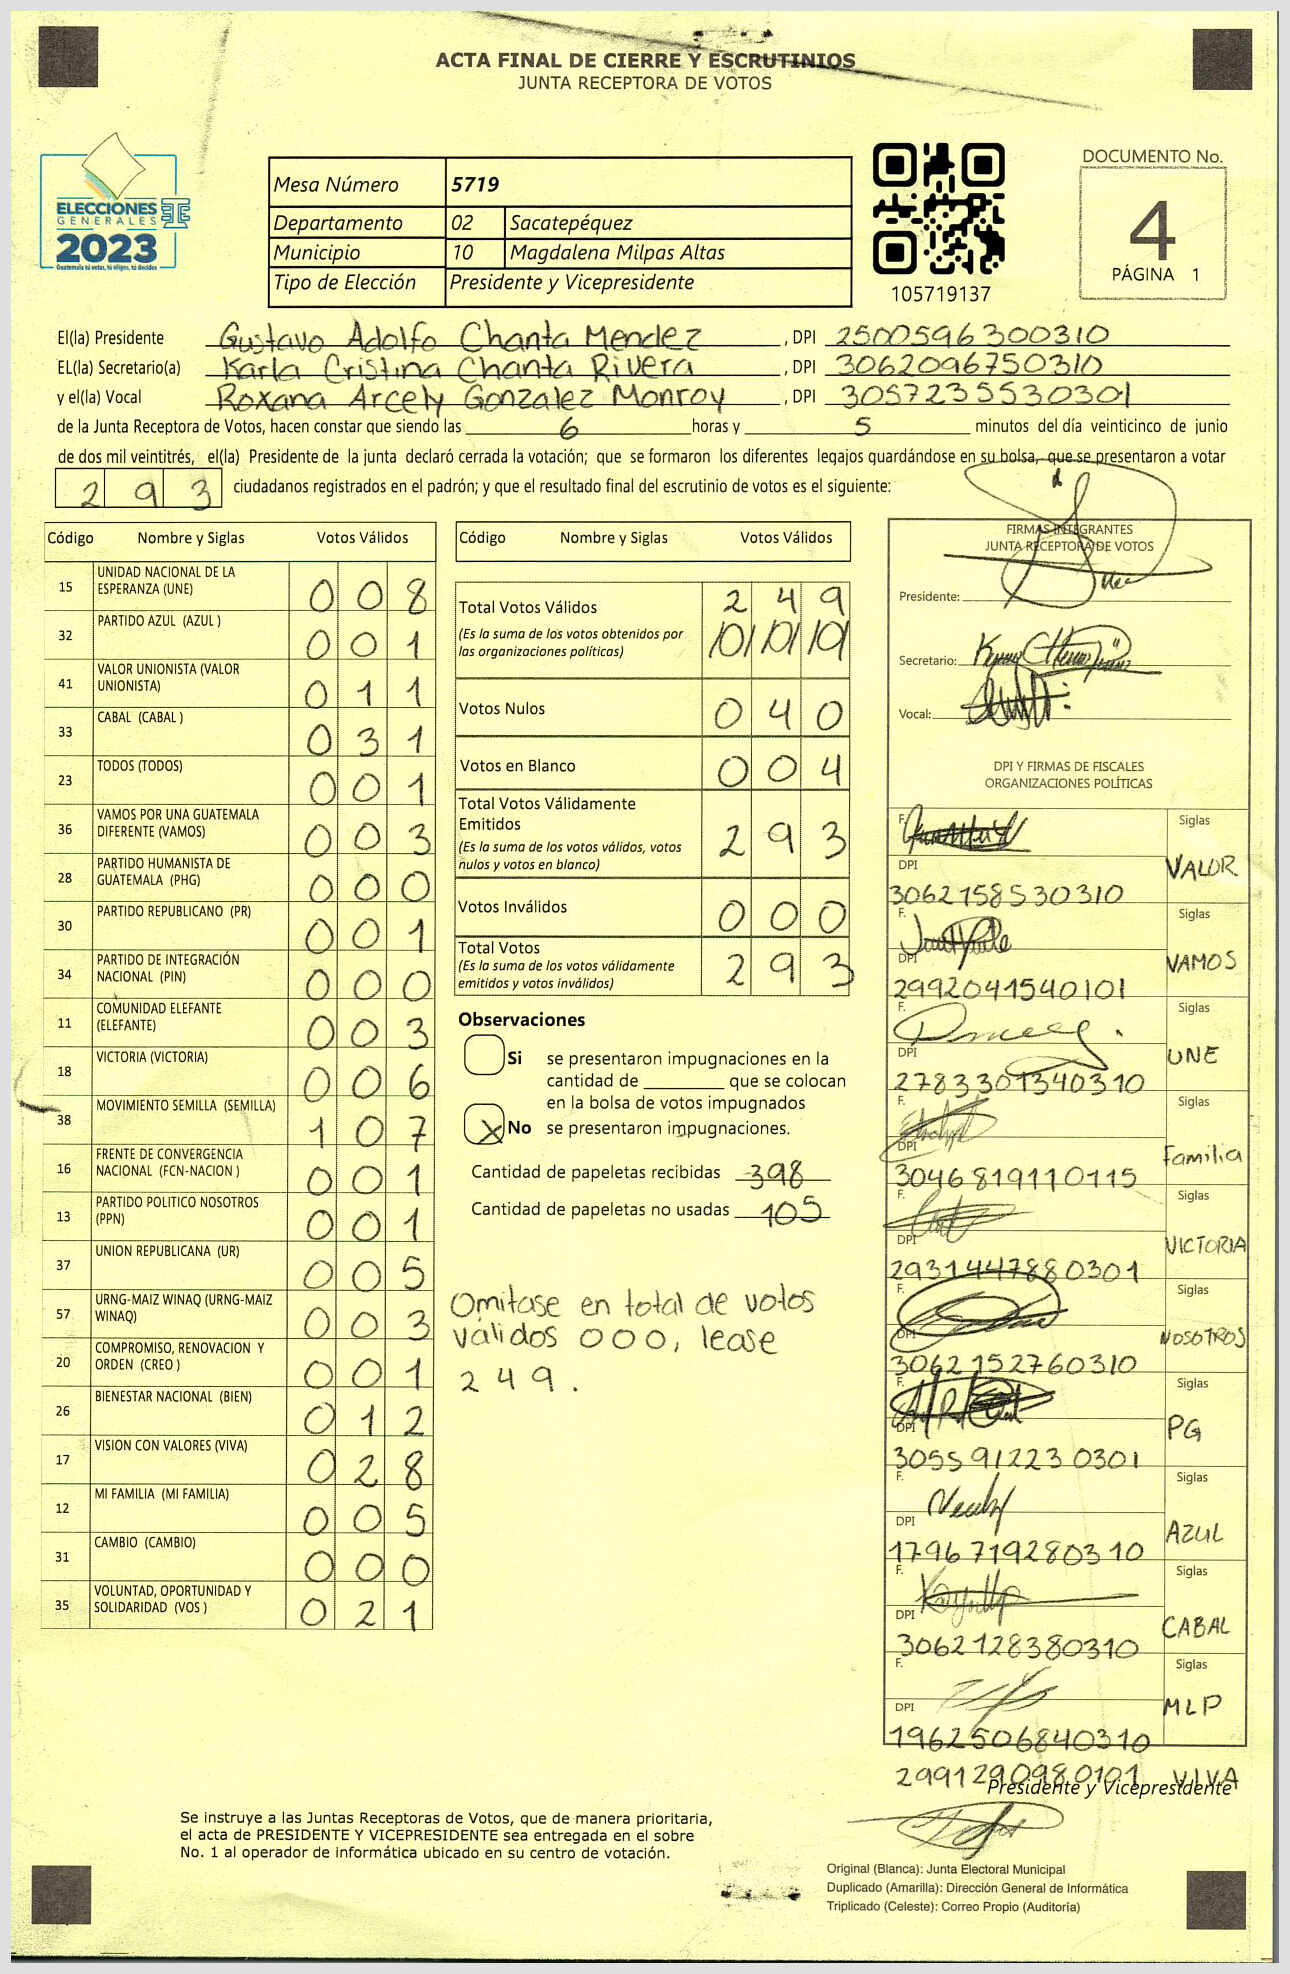 ACTA FINAL DE CIERRE Y ESCRUTINIOS
JUNTA RECEPTORA DE VOTOS
ELECCIONES
GENERALES
2023
Guatemala tú votas, tú eliges, tú decides
Mesa Número 5719
Departamento 02 Sacatepéquez
Municipio 10 Magdalena Milpas Altas
Tipo de Elección Presidente y Vicepresidente
105719137
DOCUMENTO No.
4
PÁGINA 1
El(la) Presidente Gustavo Adolfo Chanta Mendez, DPI 2500596300310
EL(la) Secretario(a) Karla Cristina Chanta Rivera, DPI 3062096750310
y el(la) Vocal Roxana Arcely Gonzalez Monroy, DPI 3057235530301
de la Junta Receptora de Votos, hacen constar que siendo las 6 horas y 5 minutos del día veinticinco de junio
de dos mil veintitrés, el(la) Presidente de la junta declaró cerrada la votación; que se formaron los diferentes legajos guardándose en su bolsa, que se presentaron a votar
293 ciudadanos registrados en el padrón; y que el resultado final del escrutinio de votos es el siguiente:
Código Nombre y Siglas Votos Válidos
15 UNIDAD NACIONAL DE LA ESPERANZA (UNE) 0 0 8
32 PARTIDO AZUL (AZUL ) 0 0 1
41 VALOR UNIONISTA (VALOR UNIONISTA) 0 1 1
33 CABAL (CABAL ) 0 3 1
23 TODOS (TODOS) 0 0 1
36 VAMOS POR UNA GUATEMALA DIFERENTE (VAMOS) 0 0 3
28 PARTIDO HUMANISTA DE GUATEMALA (PHG) 0 0 0
30 PARTIDO REPUBLICANO (PR) 0 0 1
34 PARTIDO DE INTEGRACIÓN NACIONAL (PIN) 0 0 0
11 COMUNIDAD ELEFANTE (ELEFANTE) 0 0 3
18 VICTORIA (VICTORIA) 0 0 6
38 MOVIMIENTO SEMILLA (SEMILLA) 1 0 7
16 FRENTE DE CONVERGENCIA NACIONAL (FCN-NACION ) 0 0 1
13 PARTIDO POLITICO NOSOTROS (PPN) 0 0 1
37 UNION REPUBLICANA (UR) 0 0 5
57 URNG-MAIZ WINAQ (URNG-MAIZ WINAQ) 0 0 3
20 COMPROMISO, RENOVACION Y ORDEN (CREO ) 0 0 1
26 BIENESTAR NACIONAL (BIEN) 0 1 2
17 VISION CON VALORES (VIVA) 0 2 8
12 MI FAMILIA (MI FAMILIA) 0 0 5
31 CAMBIO (CAMBIO) 0 0 0
35 VOLUNTAD, OPORTUNIDAD Y SOLIDARIDAD (VOS ) 0 2 1
Código Nombre y Siglas Votos Válidos
Total Votos Válidos 2 4 9
(Es la suma de los votos obtenidos por las organizaciones políticas) 0 0 0
Votos Nulos 0 4 0
Votos en Blanco 0 0 4
Total Votos Válidamente Emitidos
(Es la suma de los votos válidos, votos nulos y votos en blanco) 2 9 3
Votos Inválidos 0 0 0
Total Votos
(Es la suma de los votos válidamente emitidos y votos inválidos) 2 9 3
Observaciones
Si se presentaron impugnaciones en la
cantidad de ________ que se colocan
en la bolsa de votos impugnados
X No se presentaron impugnaciones.
Cantidad de papeletas recibidas 398
Cantidad de papeletas no usadas 105
Omitase en total de votos
válidos 000, lease
249.
FIRMAS INTEGRANTES
JUNTA RECEPTORA DE VOTOS
Presidente:
Secretario:
Vocal:
DPI Y FIRMAS DE FISCALES
ORGANIZACIONES POLÍTICAS
F. Siglas
DPI VALOR
3062158530310
F. Siglas
DPI VAMOS
2992041540101
F. Siglas
DPI UNE
2783301340310
F. Siglas
DPI Familia
3046819110115
F. Siglas
DPI VICTORIA
2931447880301
F. Siglas
DPI NOSOTROS
3062152760310
F. Siglas
DPI PG
3055912230301
F. Siglas
DPI AZUL
1796719280310
F. Siglas
DPI CABAL
3062128380310
F. Siglas
DPI MLP
1962506840310
2991290980101 VIVA
Presidente y Vicepresidente
Se instruye a las Juntas Receptoras de Votos, que de manera prioritaria,
el acta de PRESIDENTE Y VICEPRESIDENTE sea entregada en el sobre
No. 1 al operador de informática ubicado en su centro de votación.
Original (Blanca): Junta Electoral Municipal
Duplicado (Amarilla): Dirección General de Informática
Triplicado (Celeste): Correo Propio (Auditoría)